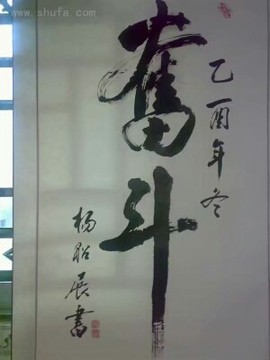 奮斗
乙酉年冬
杨昭展書
www.shufa.com